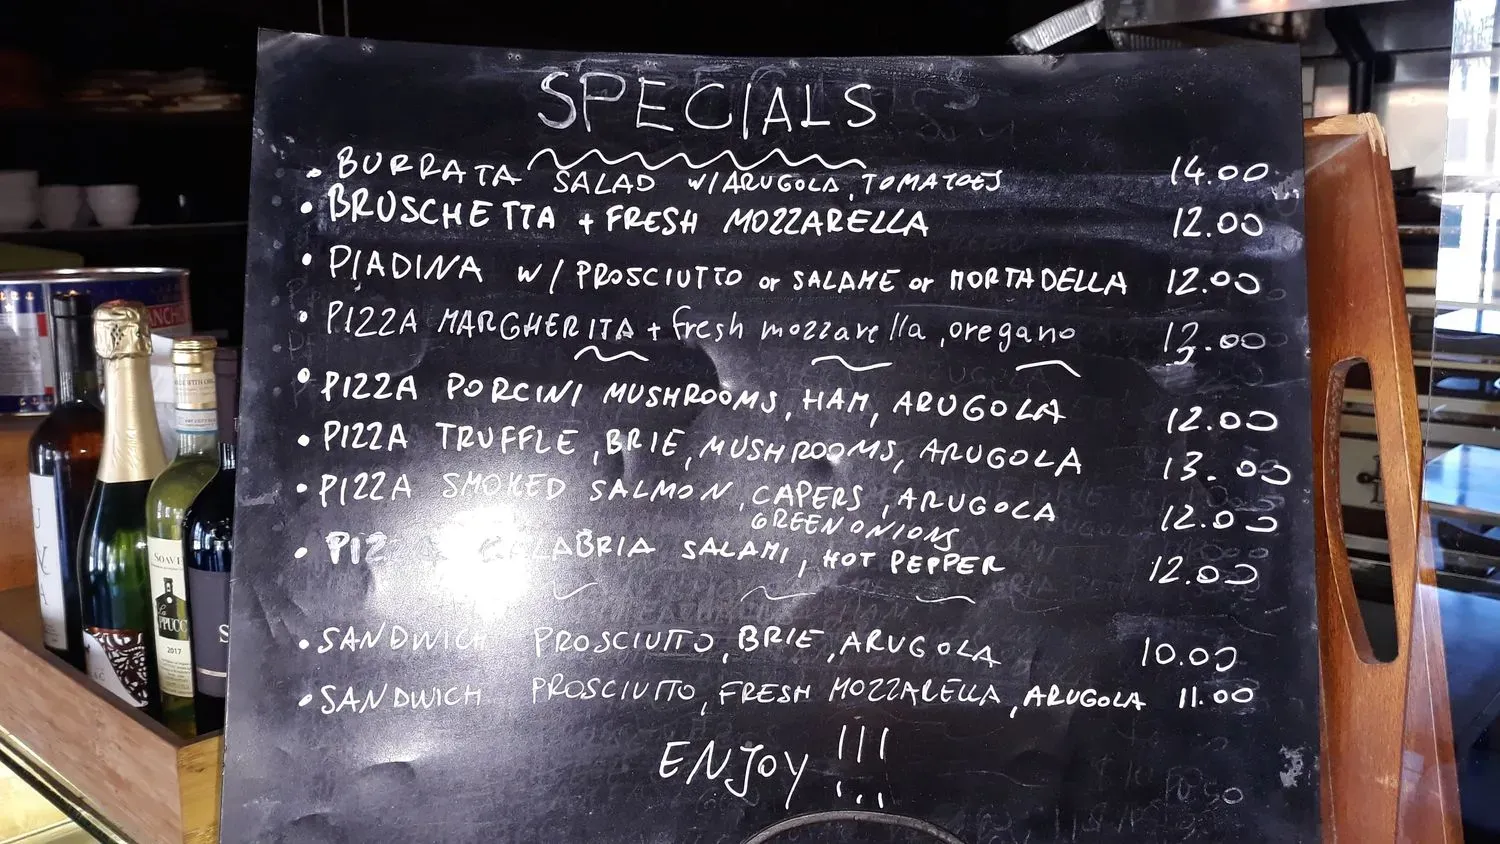 SPECIALS
• BURRATA SALAD W/ARUGOLA, TOMATOES 14.00
• BRUSCHETTA + FRESH MOZZARELLA 12.00
• PIADINA W/ PROSCIUTTO or SALAME or MORTADELLA 12.00
• PIZZA MARGHERITA + fresh mozzarella, oregano 12.00
• PIZZA PORCINI MUSHROOMS, HAM, ARUGOLA 12.00
• PIZZA TRUFFLE, BRIE, MUSHROOMS, ARUGOLA 13.00
• PIZZA SMOKED SALMON, CAPERS, ARUGOLA 12.00
GREEN ONIONS
• PIZ CALABRIA SALAMI, HOT PEPPER 12.00
• SANDWICH PROSCIUTTO, BRIE, ARUGOLA 10.00
• SANDWICH PROSCIUTTO, FRESH MOZZARELLA, ARUGOLA 11.00
ENJOY !!!
SOAVE
2017